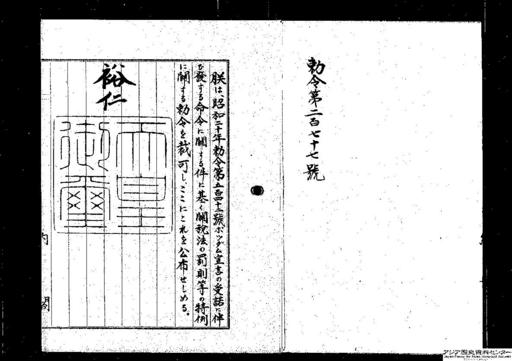 勅令第二百七十七號
朕は、昭和二十年勅令第五百四十二號ポツダム宣言の受諾に伴
ひ發する命令に關する件に基く關税法の罰則等の特例
に關する勅令を裁可し、ここにこれを公布せしめる。
裕仁
天皇
御璽
内
閣
アジア歴史資料センター